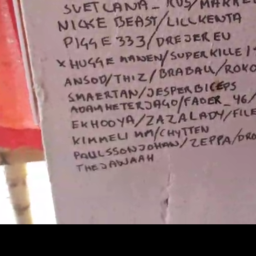 SVETLANA_RUS/MARKE
NICKE BEAST/LILLKENTA
PIGGE333/DREJEREU
X HUGGE MANEN/SUPERKILLE/
ANSOD/THIZ/BRABALL/ROKO
SMAERTAN/JESPERBICEPS
ADAMHETERJAGO/FADER_46/
EKHOOYA/ZAZALADY/FILE
KIMMELIMM/CHYTTEN
PAULSSONJOHAN/ZEPPA/DRO
THEJAWAAH